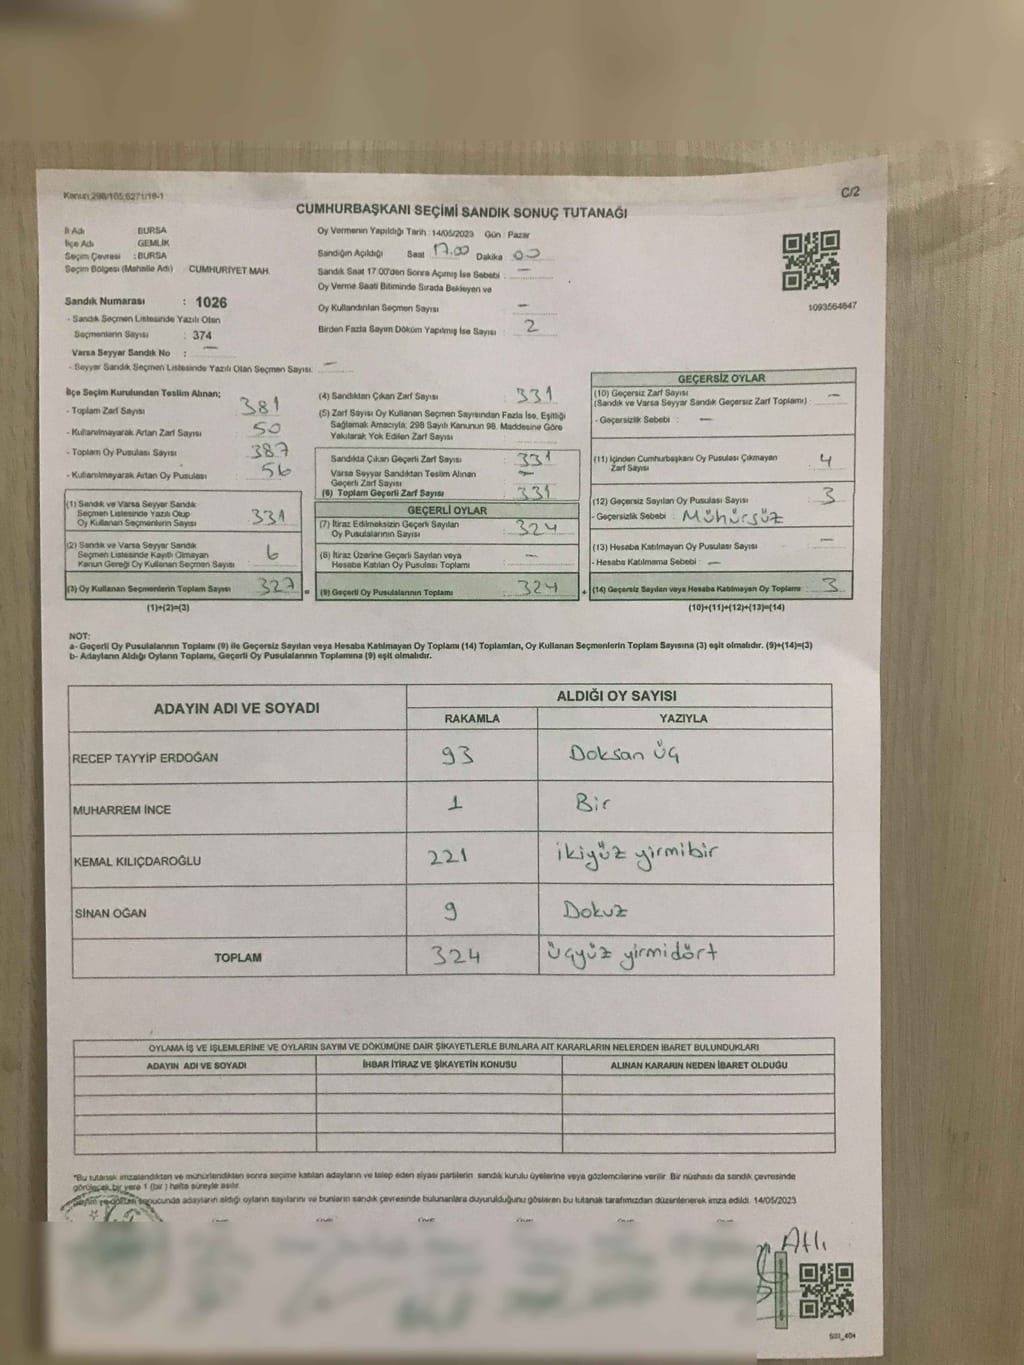 Kanun:298/105;6271/18-1
C/2
CUMHURBAŞKANI SEÇİMİ SANDIK SONUÇ TUTANAĞI
İl Adı BURSA
İlçe Adı GEMLİK
Seçim Çevresi : BURSA
Seçim Bölgesi (Mahalle Adı) : CUMHURİYET MAH.
Sandık Numarası : 1026
- Sandık Seçmen Listesinde Yazılı Olan
Seçmenlerin Sayısı : 374
Varsa Seyyar Sandık No : —
- Seyyar Sandık Seçmen Listesinde Yazılı Olan Seçmen Sayısı: —
Oy Vermenin Yapıldığı Tarih : 14/05/2023 Gün : Pazar
Sandığın Açıldığı Saat 17.00 Dakika 00
Sandık Saat 17.00'den Sonra Açılmış İse Sebebi : —
Oy Verme Saati Bitiminde Sırada Bekleyen ve
Oy Kullandırılan Seçmen Sayısı : —
Birden Fazla Sayım Döküm Yapılmış İse Sayısı : 2
1093564847
İlçe Seçim Kurulundan Teslim Alınan;
- Toplam Zarf Sayısı 381
- Kullanılmayarak Artan Zarf Sayısı 50
- Toplam Oy Pusulası Sayısı 387
- Kullanılmayarak Artan Oy Pusulası 56
(1) Sandık ve Varsa Seyyar Sandık
Seçmen Listesinde Yazılı Olup
Oy Kullanan Seçmenlerin Sayısı 331
(2) Sandık ve Varsa Seyyar Sandık
Seçmen Listesinde Kayıtlı Olmayan
Kanun Gereği Oy Kullanan Seçmen Sayısı 6
(3) Oy Kullanan Seçmenlerin Toplam Sayısı 327 =
(1)+(2)=(3)
(4) Sandıktan Çıkan Zarf Sayısı : 331
(5) Zarf Sayısı Oy Kullanan Seçmen Sayısından Fazla İse, Eşitliği
Sağlamak Amacıyla; 298 Sayılı Kanunun 98. Maddesine Göre
Yakılarak Yok Edilen Zarf Sayısı :
Sandıkta Çıkan Geçerli Zarf Sayısı : 331
Varsa Seyyar Sandıktan Teslim Alınan
Geçerli Zarf Sayısı : —
(6) Toplam Geçerli Zarf Sayısı : 331
GEÇERLİ OYLAR
(7) İtiraz Edilmeksizin Geçerli Sayılan
Oy Pusulalarının Sayısı : 324
(8) İtiraz Üzerine Geçerli Sayılan veya
Hesaba Katılan Oy Pusulası Toplamı : —
(9) Geçerli Oy Pusulalarının Toplamı : 324 +
GEÇERSİZ OYLAR
(10) Geçersiz Zarf Sayısı
(Sandık ve Varsa Seyyar Sandık Geçersiz Zarf Toplamı) : —
- Geçersizlik Sebebi : —
(11) İçinden Cumhurbaşkanı Oy Pusulası Çıkmayan
Zarf Sayısı : 4
(12) Geçersiz Sayılan Oy Pusulası Sayısı : 3
- Geçersizlik Sebebi : Mühürsüz
(13) Hesaba Katılmayan Oy Pusulası Sayısı : —
- Hesaba Katılmama Sebebi : —
(14) Geçersiz Sayılan veya Hesaba Katılmayan Oy Toplamı : 3
(10)+(11)+(12)+(13)=(14)
NOT:
a- Geçerli Oy Pusulalarının Toplamı (9) ile Geçersiz Sayılan veya Hesaba Katılmayan Oy Toplamı (14) Toplamları, Oy Kullanan Seçmenlerin Toplam Sayısına (3) eşit olmalıdır. (9)+(14)=(3)
b- Adayların Aldığı Oyların Toplamı, Geçerli Oy Pusulalarının Toplamına (9) eşit olmalıdır.
ADAYIN ADI VE SOYADI
ALDIĞI OY SAYISI
RAKAMLA YAZIYLA
RECEP TAYYİP ERDOĞAN 93 Doksan üç
MUHARREM İNCE 1 Bir
KEMAL KILIÇDAROĞLU 221 ikiyüz yirmibir
SİNAN OĞAN 9 Dokuz
TOPLAM 324 üçyüz yirmidört
OYLAMA İŞ VE İŞLEMLERİNE VE OYLARIN SAYIM VE DÖKÜMÜNE DAİR ŞİKAYETLERLE BUNLARA AİT KARARLARIN NELERDEN İBARET BULUNDUKLARI
ADAYIN ADI VE SOYADI İHBAR İTİRAZ VE ŞİKAYETİN KONUSU ALINAN KARARIN NEDEN İBARET OLDUĞU
*Bu tutanak imzalandıktan ve mühürlendikten sonra seçime katılan adayların ve talep eden siyasi partilerin sandık kurulu üyelerine veya gözlemcilerine verilir. Bir nüshası da sandık çevresinde
görülecek bir yere 1 (bir) hafta süreyle asılır.
sonucunda adayların aldığı oyların sayılarını ve bunların sandık çevresinde bulunanlara duyurulduğunu gösteren bu tutanak tarafımızdan düzenlenerek imza edildi. 14/05/2023
Atlı